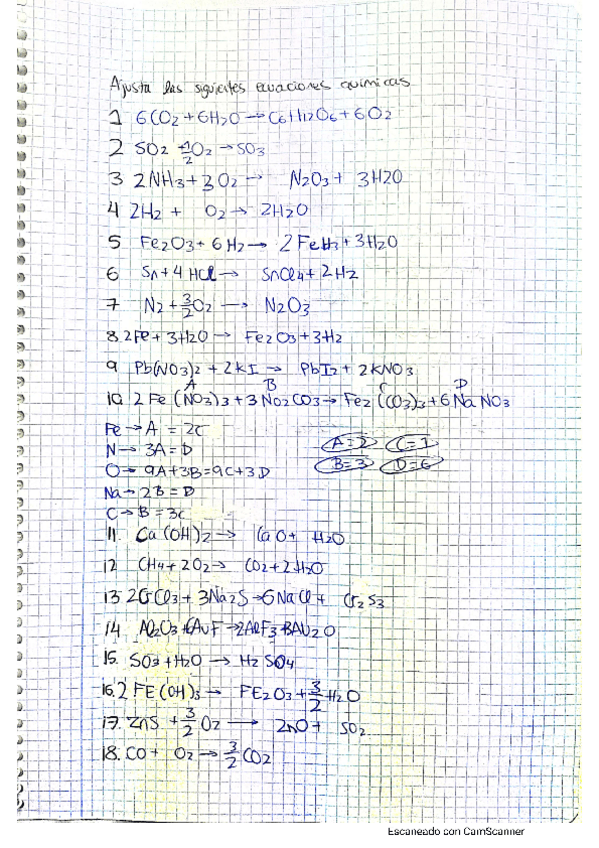 Ajusta las siguientes ecuaciones químicas
1 6CO2 + 6H2O → C6H12O6 + 6O2
2 SO2 + 1/2 O2 → SO3
3 2NH3 + 3O2 → N2O3 + 3H2O
4 2H2 + O2 → 2H2O
5 Fe2O3 + 6H2 → 2FeH3 + 3H2O
6 Sn + 4HCl → SnCl4 + 2H2
7 N2 + 3/2 O2 → N2O3
8. 2Fe + 3H2O → Fe2O3 + 3H2
9 Pb(NO3)2 + 2kI → PbI2 + 2KNO3
A B C D
10 2Fe(NO3)3 + 3Na2CO3 → Fe2(CO3)3 + 6NaNO3
Fe → A = 2C
N → 3A = D A=2 C=1
O → 9A + 3B = 9C + 3D B=3 D=6
Na → 2B = D
C → B = 3C
11. Ca(OH)2 → CaO + H2O
12 CH4 + 2O2 → CO2 + 2H2O
13 2CrCl3 + 3Na2S → 6NaCl + Cr2S3
14. Al2O3 + 6AuF → 2AlF3 + 3AU2O
15. SO3 + H2O → H2SO4
16. 2FE(OH)3 → FE2O3 + 3/2 H2O
17. ZnS + 3/2 O2 → ZnO + SO2
18. CO + O2 → 3/2 CO2
Escaneado con CamScanner